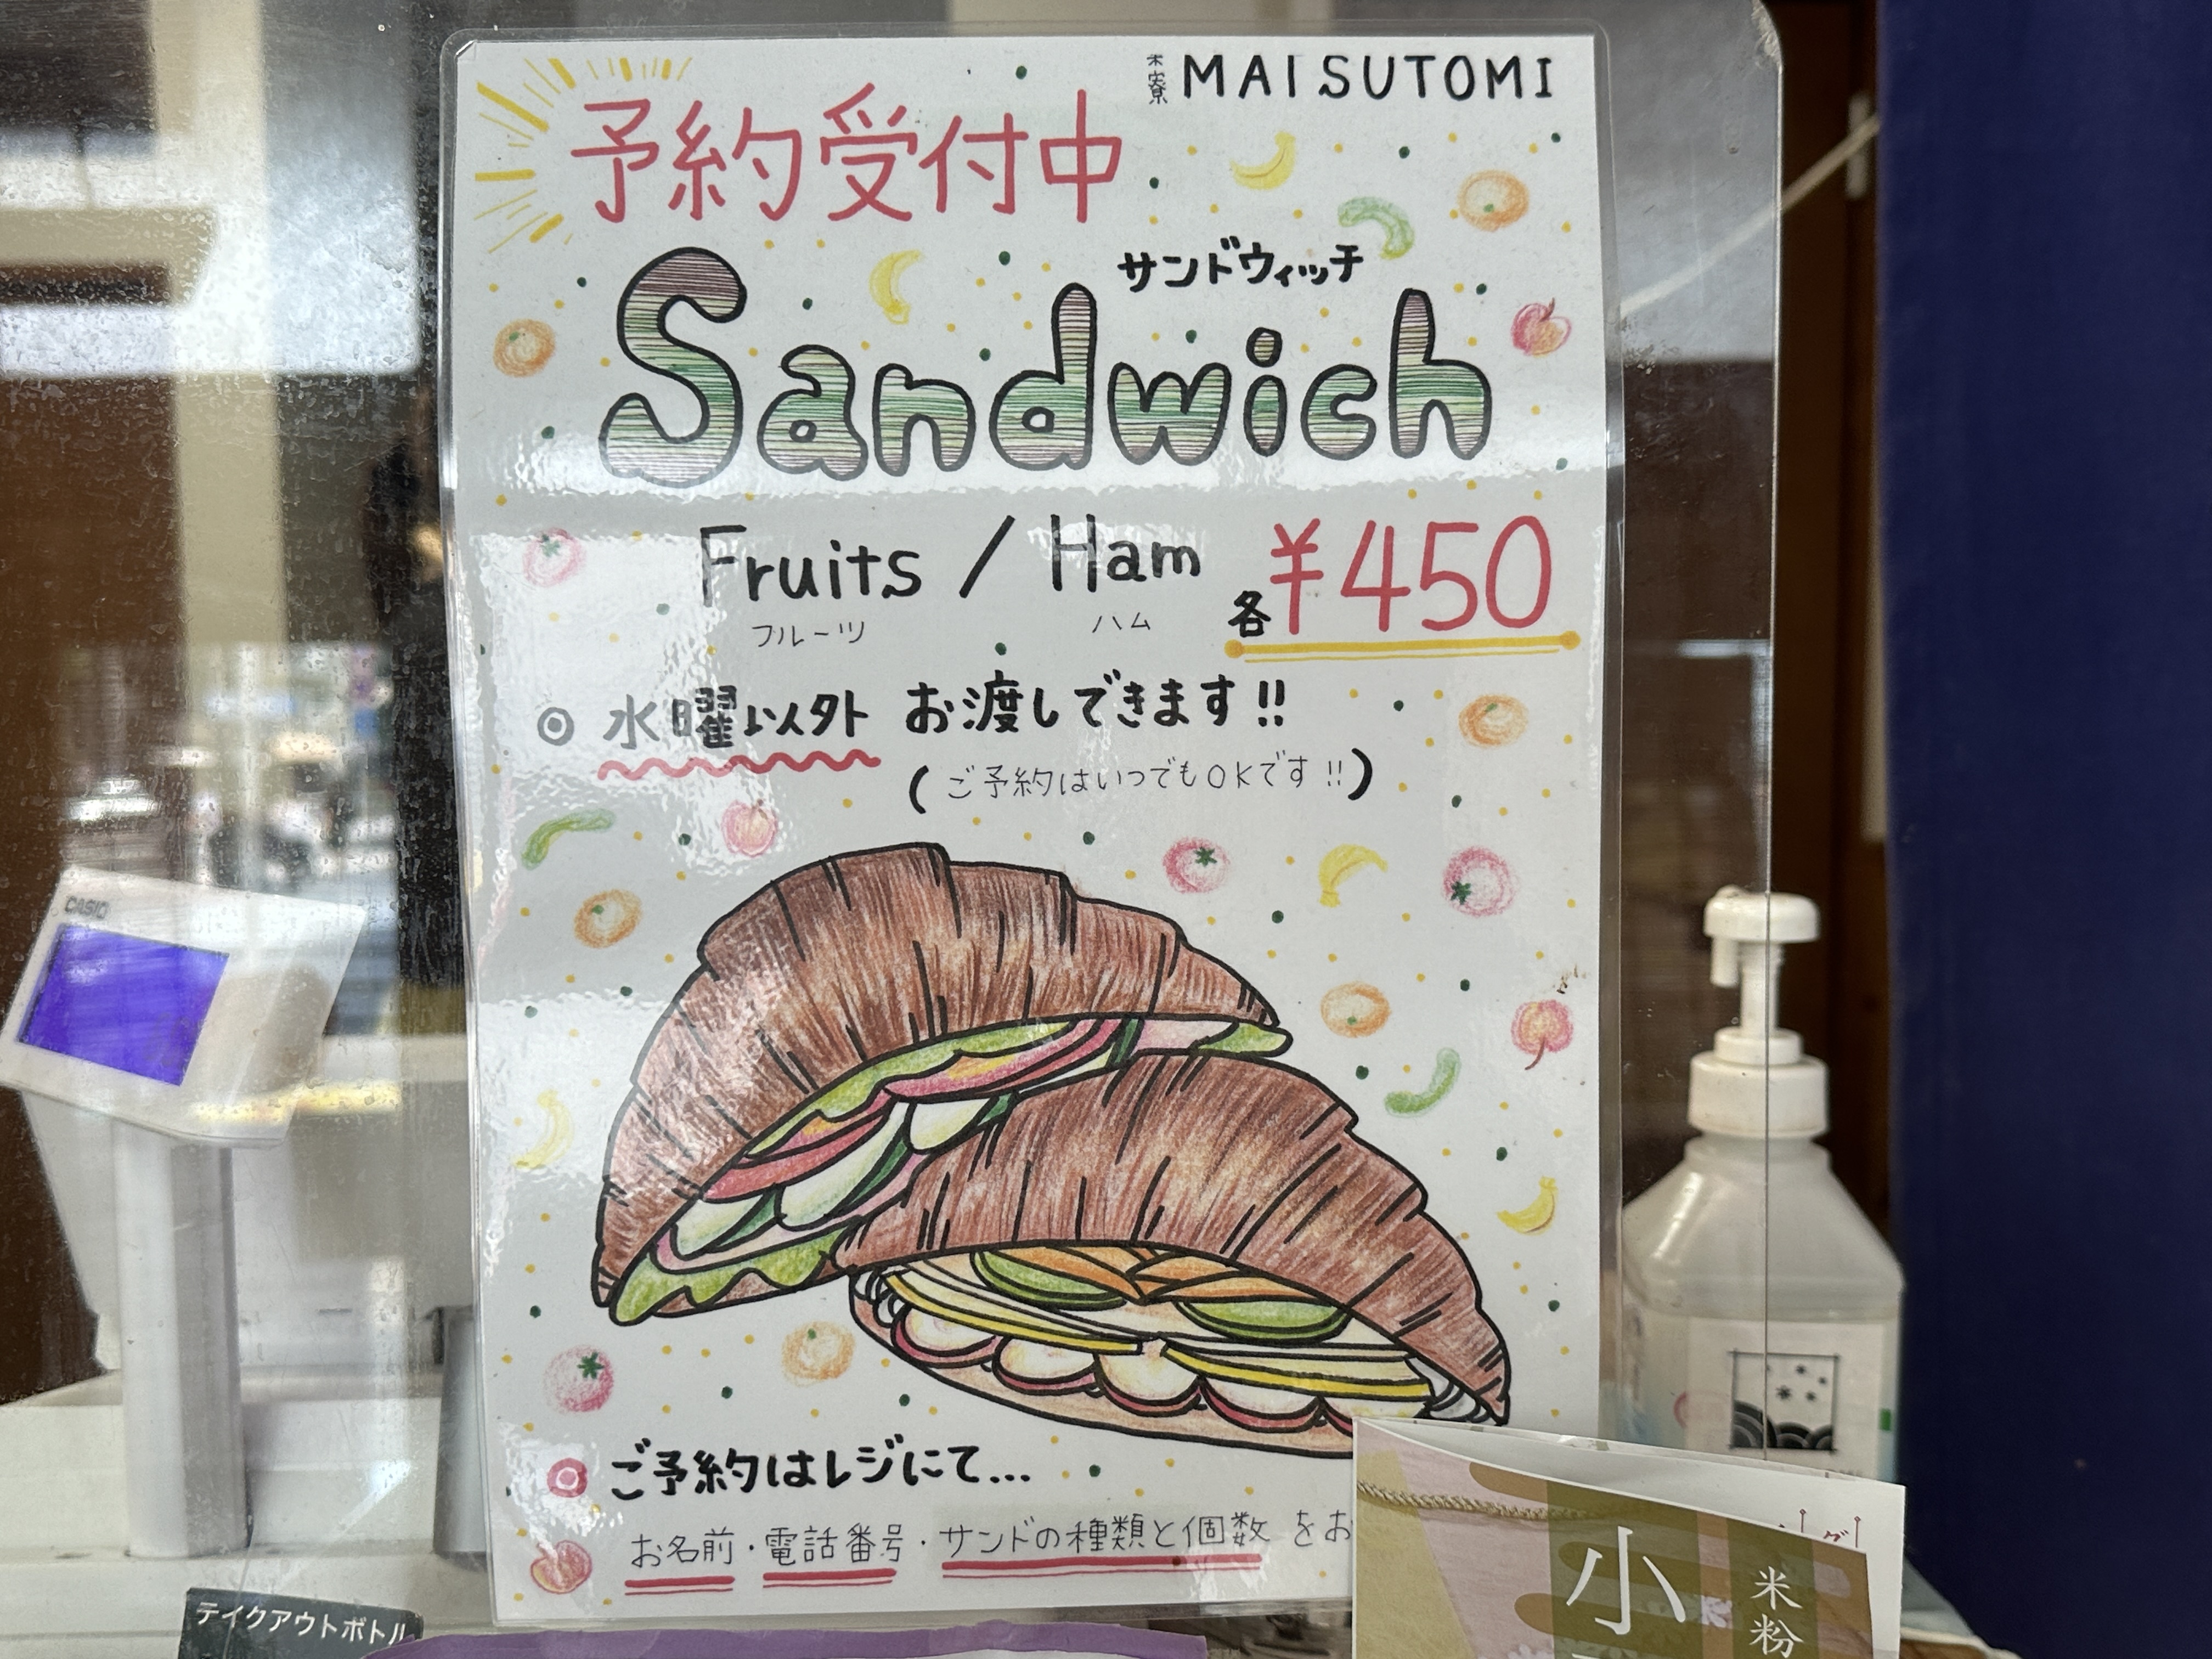 MAISUTOMI
予約受付中
サンドウィッチ
Sandwich
Fruits / Ham 各¥450
フルーツ ハム
◎ 水曜以外 お渡しできます!!
(ご予約はいつでもOKです!!)
CASIO
◎ ご予約はレジにて...
お名前・電話番号・サンドの種類と個数 をお
テイクアウトボトル
小
米粉